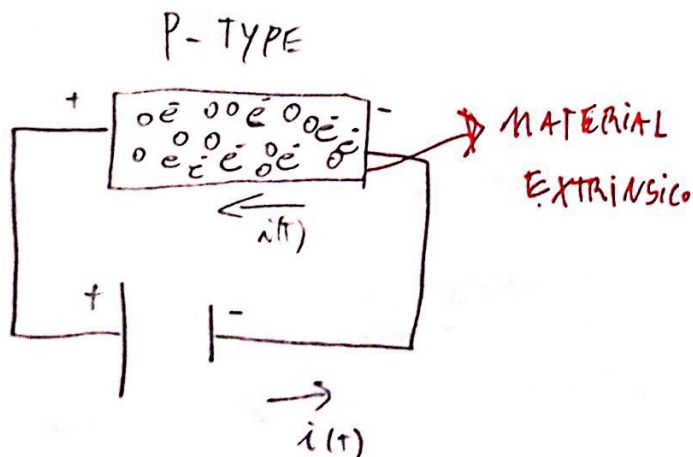 P-TYPE
+ -
o e⁻ o o e⁻ o o e⁻ e⁻
o e⁻ o e⁻ o e⁻ o e⁻ o o
MATERIAL
EXTRINSICO
i(t)
+ -
i(t)